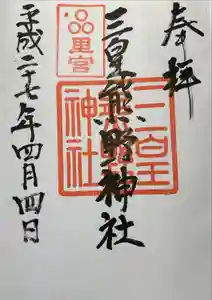 奉拝
三皇熊野神社
平成二十七年四月四日
品里宮
三皇
神社